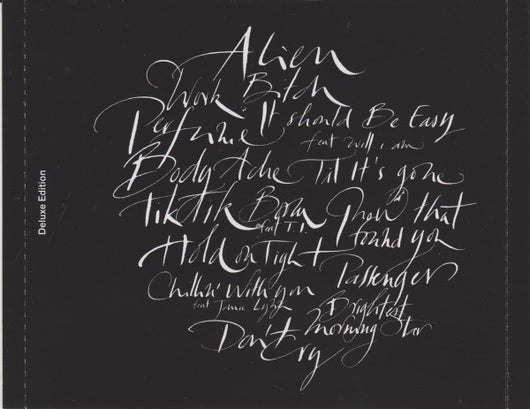 Alien
Work Bitch
Perfume It should Be Easy
feat will i am
Body Ache Til It's gone
Tik Tik Boom Now that
feat T.I. found you
Hold on Tight
Passenger
Chillin' with you
feat Jamie Lynn Brightest
Don't morning star
Cry
Deluxe Edition